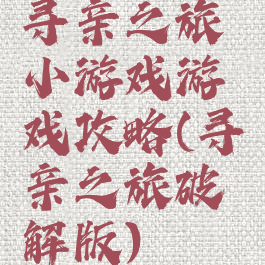 寻亲之旅
小游戏游
戏攻略(寻
亲之旅破
解版)